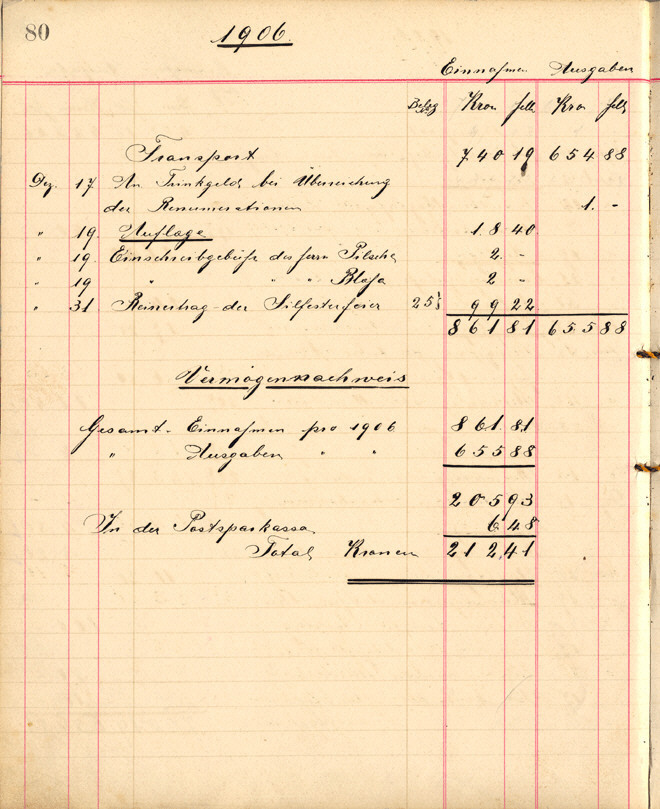 80
1906.
Einnahmen Ausgaben
Beleg Kron hell Kron hell
Transport 740 19 654 88
Dez. 17. An Trinkgeld bei Überreichung
der Renumerationen 1. -
" 19. Auflage 18 40
" 19. Einschreibgebühr des Herrn Pilsche 2 -
" 19 " " " Blaha 2 -
" 31 Reinertrag der Silfesterfeier 25 99 22
861 81 655 88
Vermögennachweis
Gesamt-Einnahmen pro 1906 861 81
" Ausgaben " " 655 88
205 93
In der Postsparkassa 6 48
Total Kronen 212 41